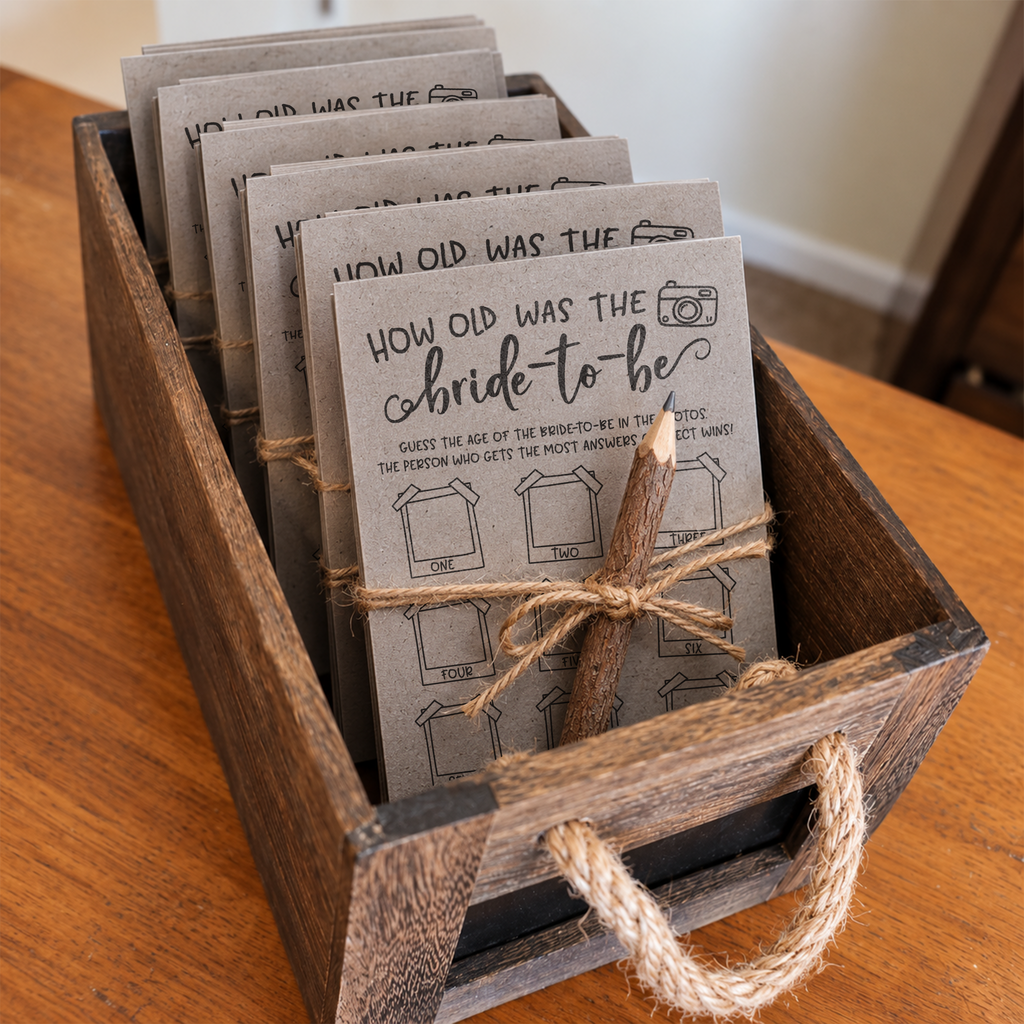 HOW OLD WAS THE
HOW OLD WAS THE
HOW OLD WAS THE
HOW OLD WAS THE
HOW OLD WAS THE
bride-to-be
GUESS THE AGE OF THE BRIDE-TO-BE IN THE PHOTOS.
THE PERSON WHO GETS THE MOST ANSWERS CORRECT WINS!
ONE TWO THREE
FOUR FIVE SIX